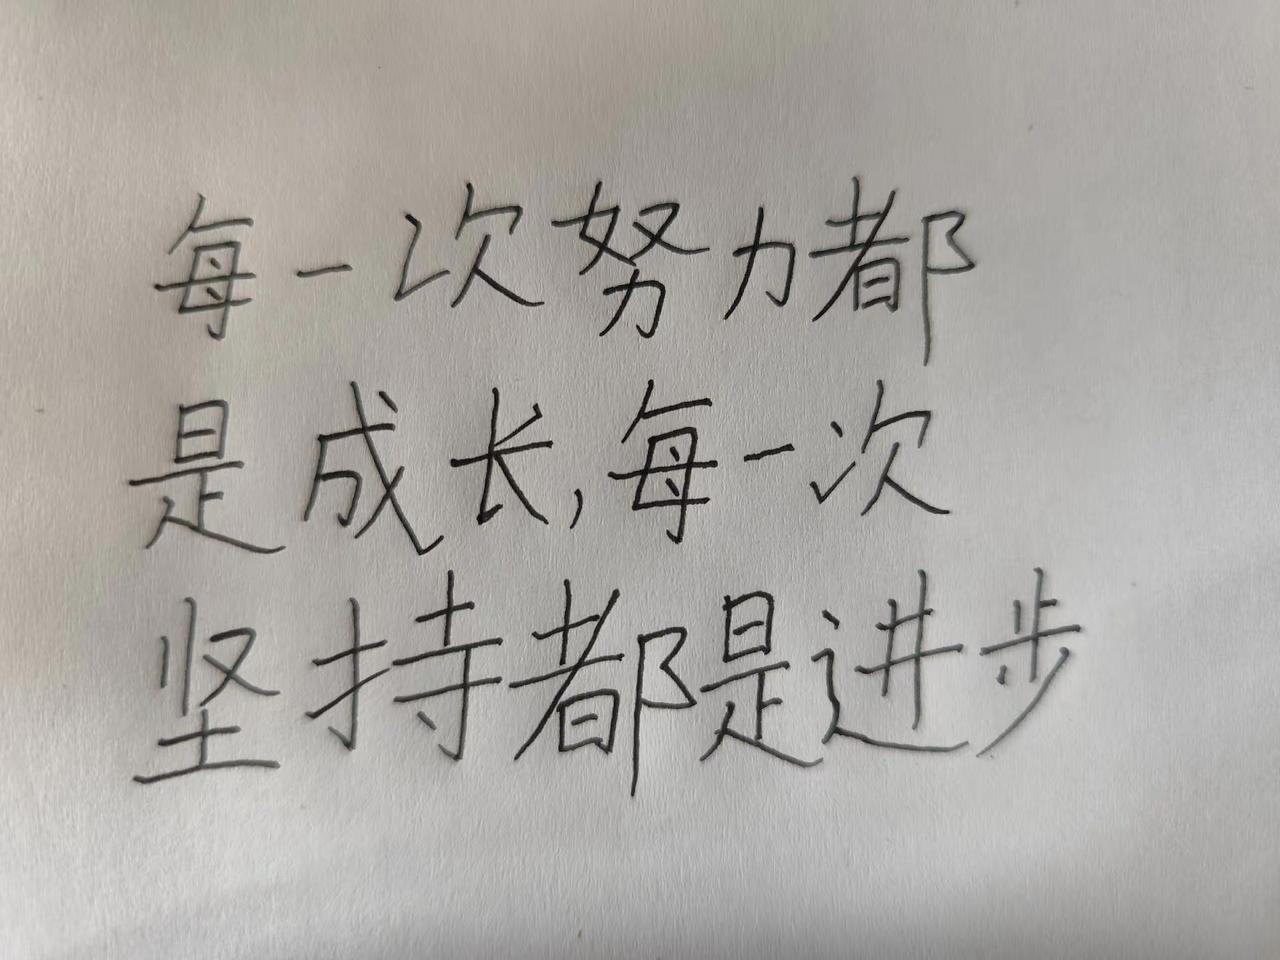 每一次努力都
是成长,每一次
坚持都是进步